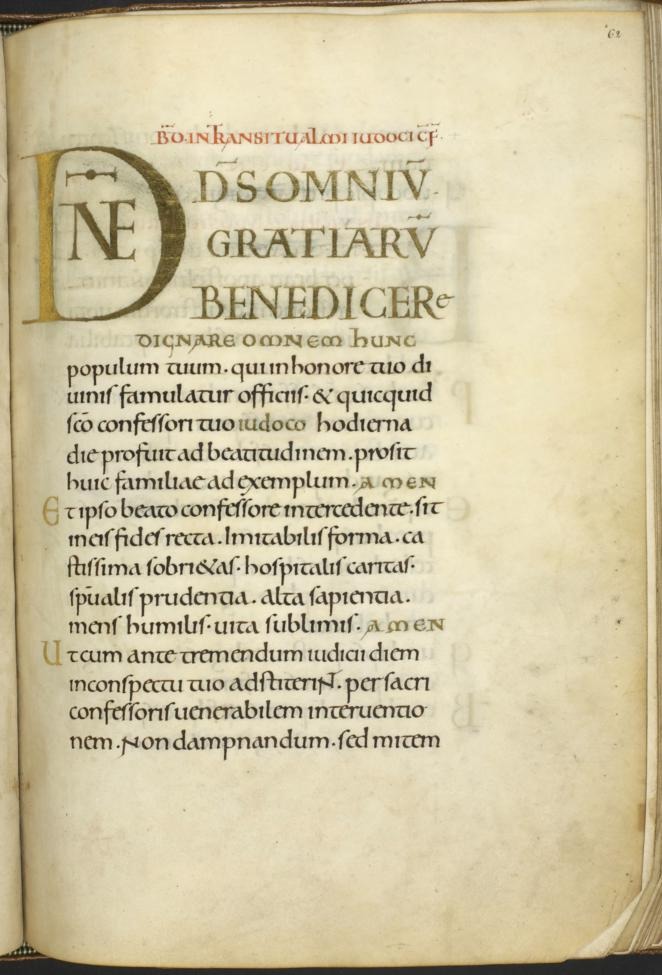 62
BD̄. IN TRANSITU ALMI IUDOCI CF̄.
DNE DS̄ OMNIŪ
GRATIARŪ
BENEDICERe
DIGNARE OMNEM hUNC
populum tuum. qui in honore tuo di
uinis famulatur officiis. & quicquid
sc̄o confessori tuo iudoco hodierna
die profuit ad beatitudinem. prosit
huic familiae ad exemplum. AMEN
Et ipso beato confessore intercedente. sit
in eis fides recta. Imitabilis forma. ca
stissima sobri&as. hospitalis caritas.
sp̄ualis prudentia. alta sapientia.
mens humilis. uita sublimis. AMEN
Ut cum ante tremendum iudicii diem
in conspectu tuo adstiteriNT. per sacri
confessoris uenerabilem interuentio
nem. Non dampnandum. sed mitem